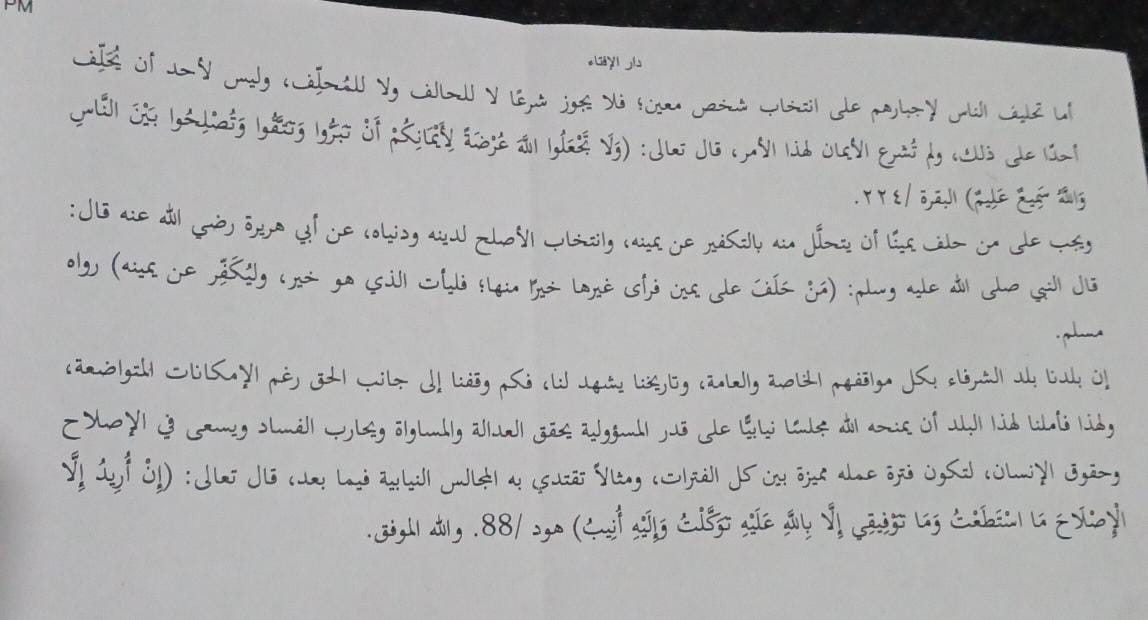 PM
دار الإفتاء
أما تحليف الناس لإجبارهم على انتخاب شخص معين؛ فلا يجوز شرعًا لا للحالف ولا للمُحلِّف، وليس لأحد أن يُحَلِّف
أحدًا على ذلك، ولم تُشرع الأيمان لهذا الأمر، قال تعالى: (وَلَا تَجْعَلُوا اللَّهَ عُرْضَةً لِأَيْمَانِكُمْ أَنْ تَبَرُّوا وَتَتَّقُوا وَتُصْلِحُوا بَيْنَ النَّاسِ
وَاللَّهُ سَمِيعٌ عَلِيمٌ) البقرة /٢٢٤.
ويجب على من حلف يمينًا أن يتحلَّل منه بالتكفير عن يمينه، وانتخاب الأصلح لدينه ودنياه، عن أبي هريرة رضي الله عنه قال:
قال النبي صلى الله عليه وسلم: (مَنْ حَلَفَ على يمين فرأى غيرها خيرًا منها؛ فليأت الذي هو خير، وليُكَفِّر عن يمينه) رواه
مسلم.
إن بلدنا بلد الشرفاء بكل مواقفهم الخاصة والعامة، وتاريخنا يشهد لنا، فكم وقفنا إلى جانب الحق رغم الإمكانات المتواضعة،
ولهذا فأملنا لهذا البلد أن يمنحه الله مجلسًا نيابيًّا على قدر المسؤولية يحقق العدالة والمساواة ويحارب الفساد ويسعى في الإصلاح
وحقوق الإنسان، لتكون فترة عمله مميزة بين كل الفترات، ومثالاً تقتدي به المجالس النيابية فيما بعد، قال تعالى: (إِنْ أُرِيدُ إِلَّا
الْإِصْلَاحَ مَا اسْتَطَعْتُ وَمَا تَوْفِيقِي إِلَّا بِاللَّهِ عَلَيْهِ تَوَكَّلْتُ وَإِلَيْهِ أُنِيبُ) هود /88. والله الموفق.